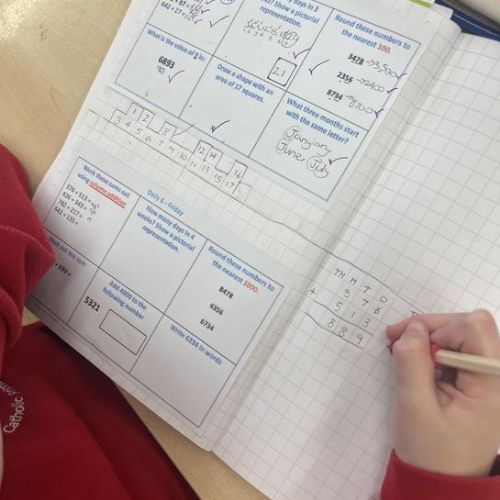 Show a pictorial
representation.
21
Round these numbers to
the nearest 100.
3478 → 3500
2356 → 2400
8734 → 8700
What is the value of 9 in:
6893
90
Draw a shape with an
area of 17 squares.
What three months start
with the same letter?
Janyary
June July
1 2 8 12 14 16
3 4 5 6 7 9 10 11 13 15 17
Daily 6 - Friday
Work these sums out
using column addition
376 + 513 =
426 + 343 =
782 + 217 =
642 + 135 =
How many days in 4
weeks? Show a pictorial
representation.
Round these numbers to
the nearest 1000.
8478
6356
6734
Work out this sum
Add 4200 to the
following number
5321
Write 6234 in words
TH H T O
3 7 6
+ 5 1 3
8 8 9
Catholic